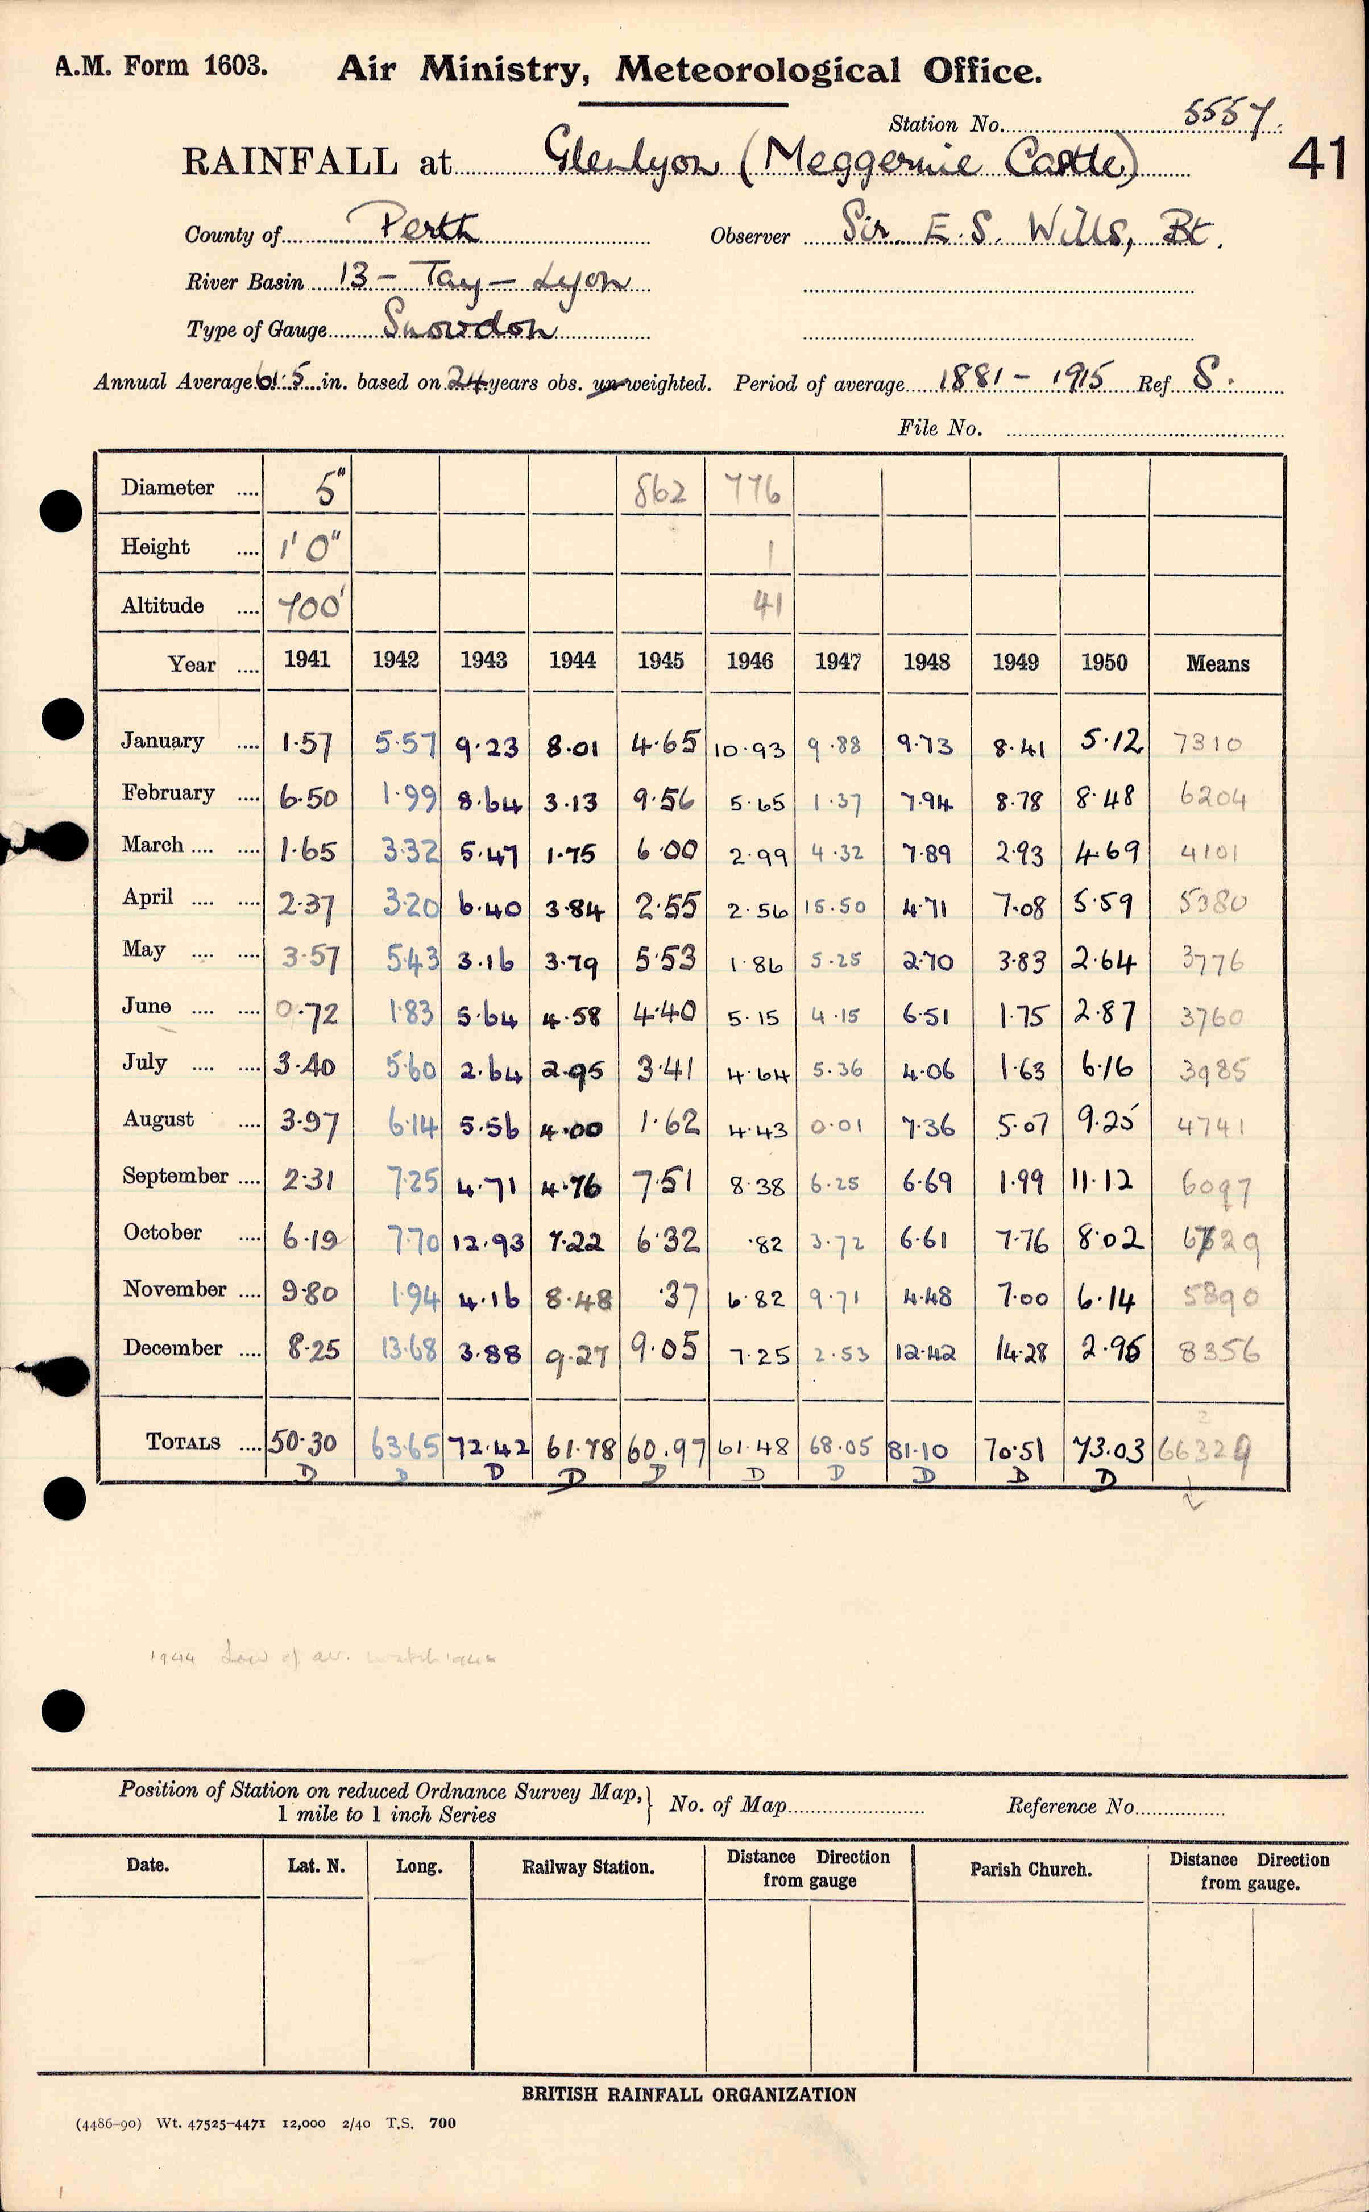 A.M. Form 1603. Air Ministry, Meteorological Office.
Station No. 5557.
41
RAINFALL at Glenlyon (Meggernie Castle)
County of Perth Observer Sir E. S. Wills, Bt.
River Basin 13 - Tay - Lyon
Type of Gauge Snowdon
Annual Average 61.5 in. based on 24 years obs. un-weighted. Period of average 1881 - 1915 Ref. S.
File No.
Diameter .... 5" 862 776
Height .... 1' 0" 1
Altitude .... 700' 41
Year .... 1941 1942 1943 1944 1945 1946 1947 1948 1949 1950 Means
January .... 1.57 5.57 9.23 8.01 4.65 10.93 9.88 9.73 8.41 5.12 7310
February .... 6.50 1.99 8.64 3.13 9.56 5.65 1.37 7.94 8.78 8.48 6204
March .... .... 1.65 3.32 5.47 1.75 6.00 2.99 4.32 7.89 2.93 4.69 4101
April .... .... 2.37 3.20 6.40 3.84 2.55 2.56 15.50 4.71 7.08 5.59 5380
May .... .... 3.57 5.43 3.16 3.79 5.53 1.86 5.25 2.70 3.83 2.64 3776
June .... .... 0.72 1.83 5.64 4.58 4.40 5.15 4.15 6.51 1.75 2.87 3760
July .... .... 3.40 5.60 2.64 2.95 3.41 4.64 5.36 4.06 1.63 6.16 3985
August .... 3.97 6.14 5.56 4.00 1.62 4.43 0.01 7.36 5.07 9.25 4741
September .... 2.31 7.25 4.71 4.76 7.51 8.38 6.25 6.69 1.99 11.12 6097
October .... 6.19 7.70 12.93 7.22 6.32 .82 3.72 6.61 7.76 8.02 6729
November .... 9.80 1.94 4.16 8.48 .37 6.82 9.71 4.48 7.00 6.14 5890
December .... 8.25 13.68 3.88 9.27 9.05 7.25 2.53 12.42 14.28 2.95 8356
TOTALS .... 50.30 63.65 72.42 61.78 60.97 61.48 68.05 81.10 70.51 73.03 66329
D D D D D D D D D D
1944 Low of av.
Position of Station on reduced Ordnance Survey Map, } No. of Map Reference No.
1 mile to 1 inch Series
Date. Lat. N. Long. Railway Station. Distance Direction from gauge Parish Church. Distance Direction from gauge.
BRITISH RAINFALL ORGANIZATION
(4486-90) Wt. 47525-4471 12,000 2/40 T.S. 700